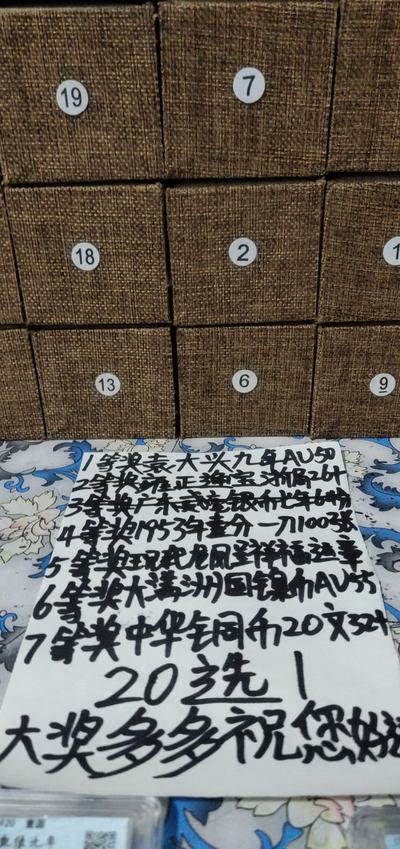 19
7
18
2
1
13
6
9
1等奖袁大头九年AU50
2等奖雍正通宝浙局26+
3等奖广东贰毫银币七年
4等奖1953年壹分一刀100张
5等奖现代龙凤呈祥福运章
6等奖大满洲国镍币AU55
7等奖中华铜币20文52+
20选1
大奖多多祝您好运
元年